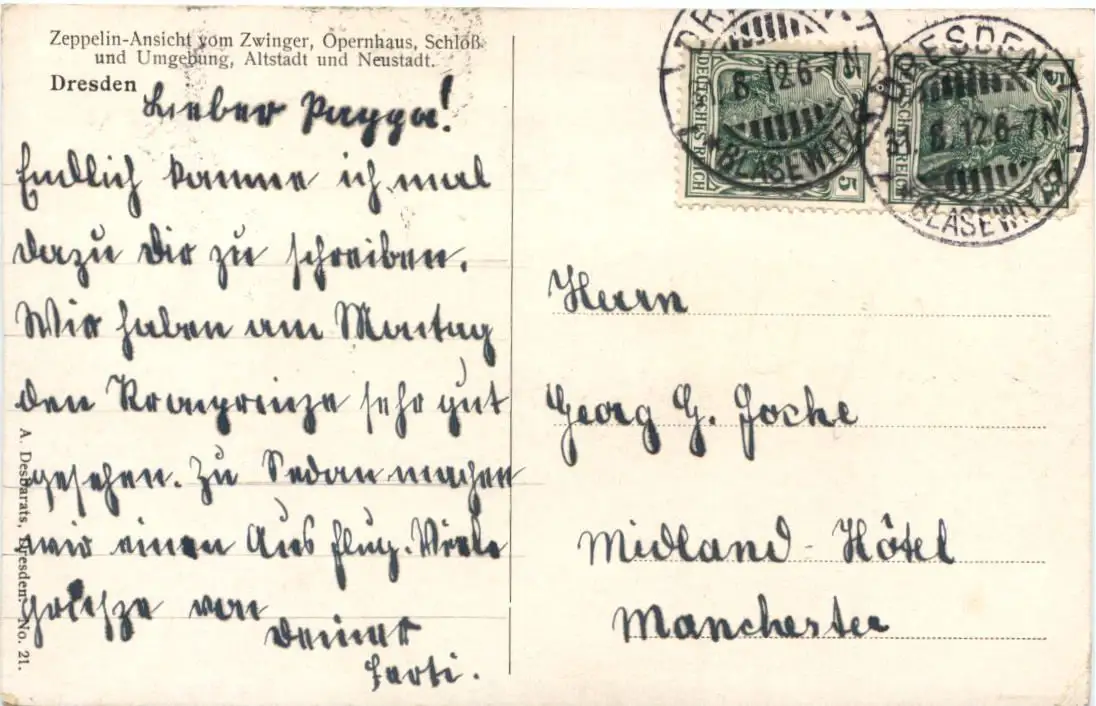 Zeppelin-Ansicht vom Zwinger, Opernhaus, Schloß
und Umgebung, Altstadt und Neustadt.
Dresden
Lieber Pappa!
Endlich komme ich mal
dazu Dir zu schreiben.
Wir haben am Montag
den Kronprinze sehr gut
gesehen. Zu Sedan machen
wir einen Ausflug. Viele
Grüsze von
Deiner
A. Desbarats, Dresden. No. 21.
DEUTSCHES REICH
5
5
DRESDEN
8.12.6-7N
*BLASEWITZ
DEUTSCHES REICH
5
5
DRESDEN
31.8.12.6-7N.
*BLASEWITZ
Herrn
Georg G.
Midland-Hôtel
Manchester